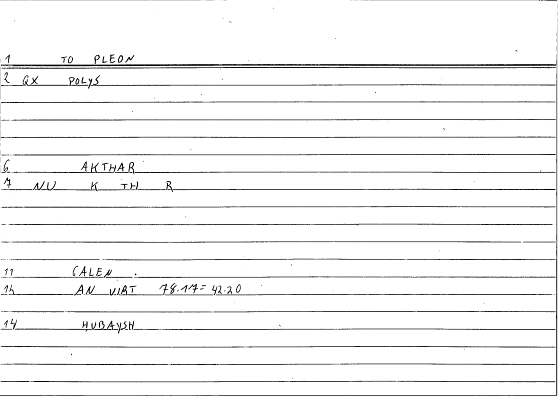 1 TO PLEON
2 QX POLYS
6 AKTHAR
7 NU K TH R
11 CALEN
12 AN VIRT 78.17=42.20
14 HUBAYSH